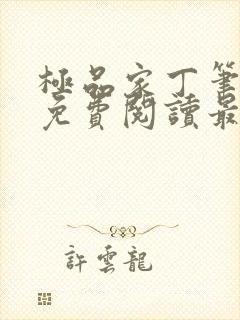 極品家丁筆
免費閱讀最
許雲龍